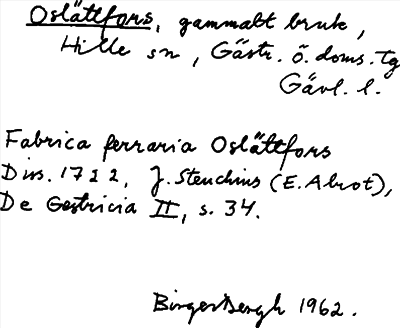 Oslättfors, gammalt bruk,
Hille sn, Gästr. ö. doms. tg
Gävl. l.
Fabrica ferraria Oslättfors
Diss. 1722, J. Stenchius (E. Alrot),
De Gestricia II, s. 34.
Birger Bergh 1962.